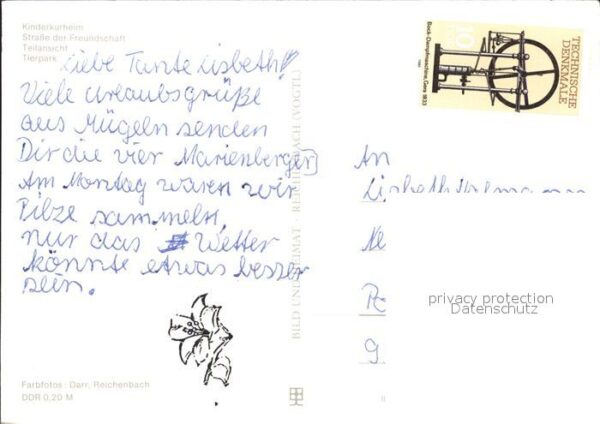 Kinderkurheim
Straße der Freundschaft
Teilansicht
Tierpark
Liebe Tante Lisbeth!
Viele Urlaubsgrüße
aus Mügeln senden
Dir die vier Marienberger
Am Montag waren wir
Pilze sammeln,
nur das Wetter
könnte etwas besser
sein.
Farbfotos: Darr, Reichenbach
DDR 0,20 M
BILD UND HEIMAT · REICHENBACH (VOGTL)
10
DDR
TECHNISCHE
DENKMALE
Bock-Dampfmaschine, Gera 1833
1985
An
Lisbeth
Ne
9
privacy protection
Datenschutz